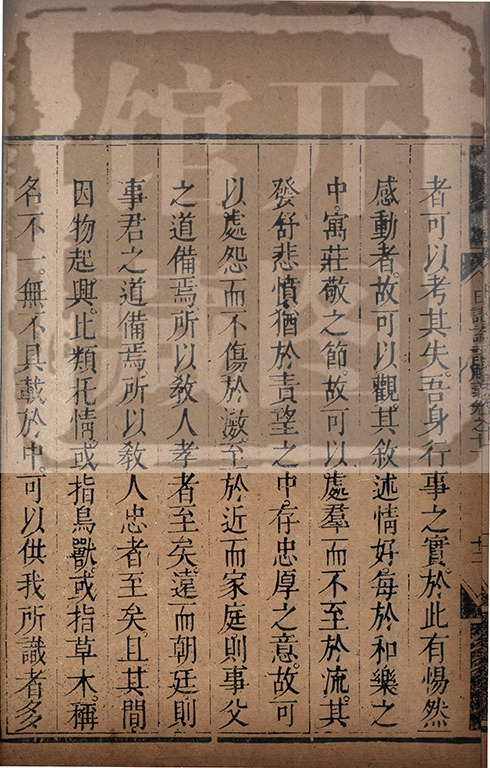 者可以考其失吾身行事之實於此有惕然
感動者故可以觀其敘述情好每於和樂之
中寓莊敬之節故可以處羣而不至於流其
發舒悲憤猶於責望之中存忠厚之意故可
以處怨而不傷於激至於近而家庭則事父
之道備焉所以敎人孝者至矣遠而朝廷則
事君之道備焉所以敎人忠者至矣且其間
因物起興比類托情或指鳥獸或指草木稱
名不一無不具載於中可以供我所識者多